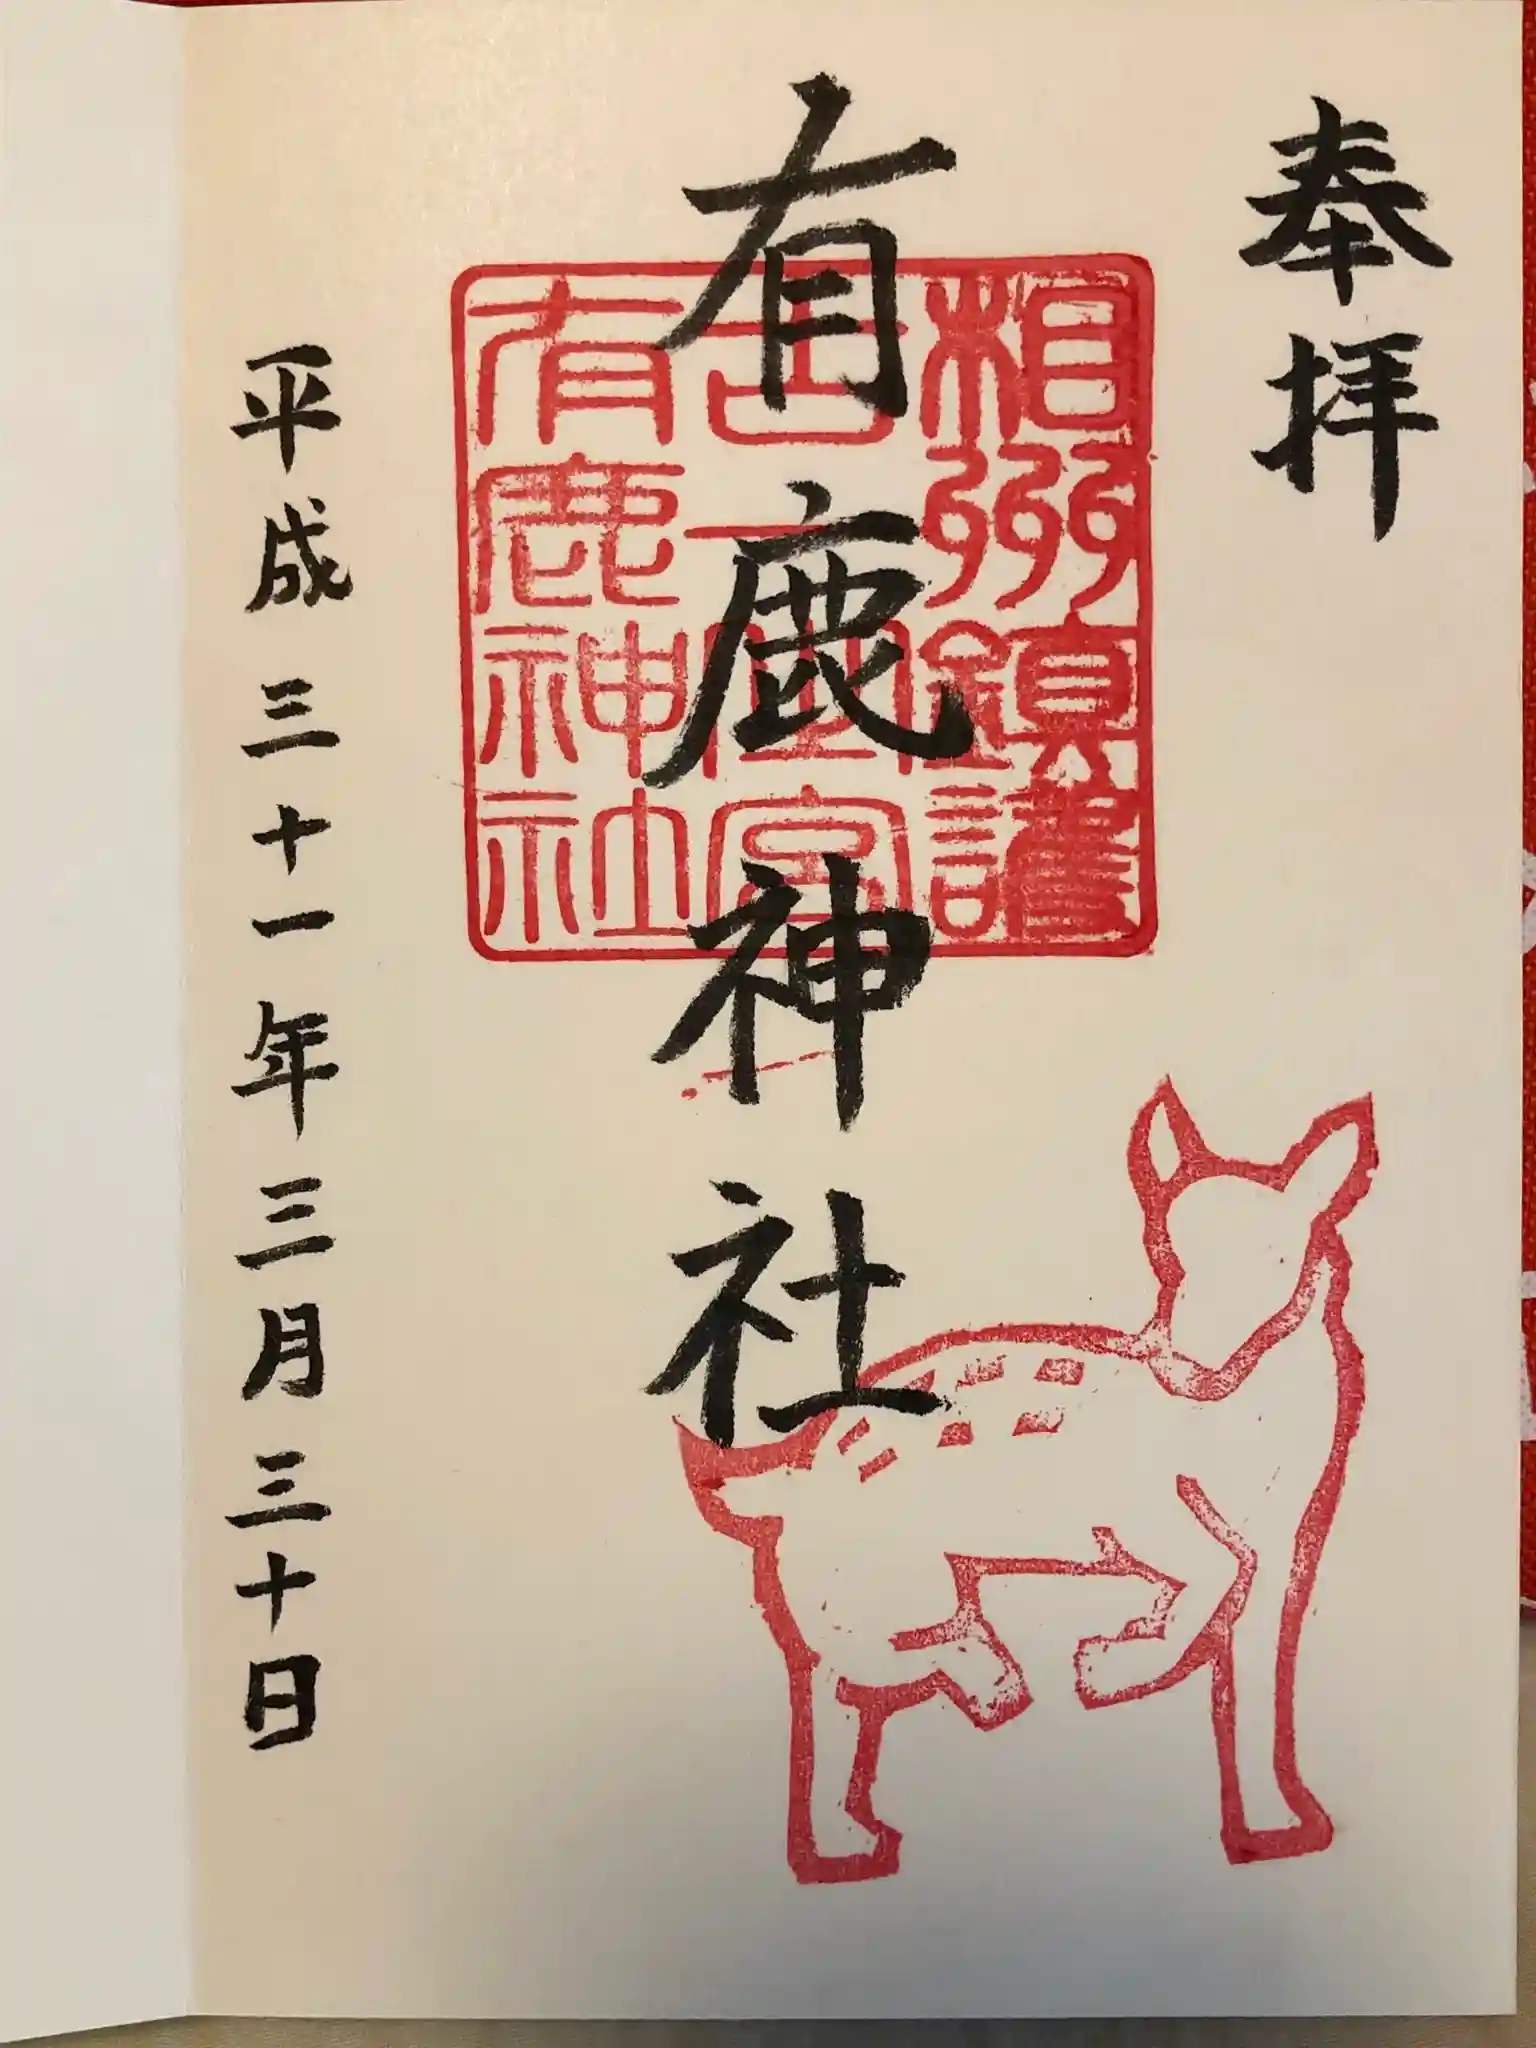 奉拝
有鹿神社
相州鎮護
有鹿神社
平成三十一年三月三十日